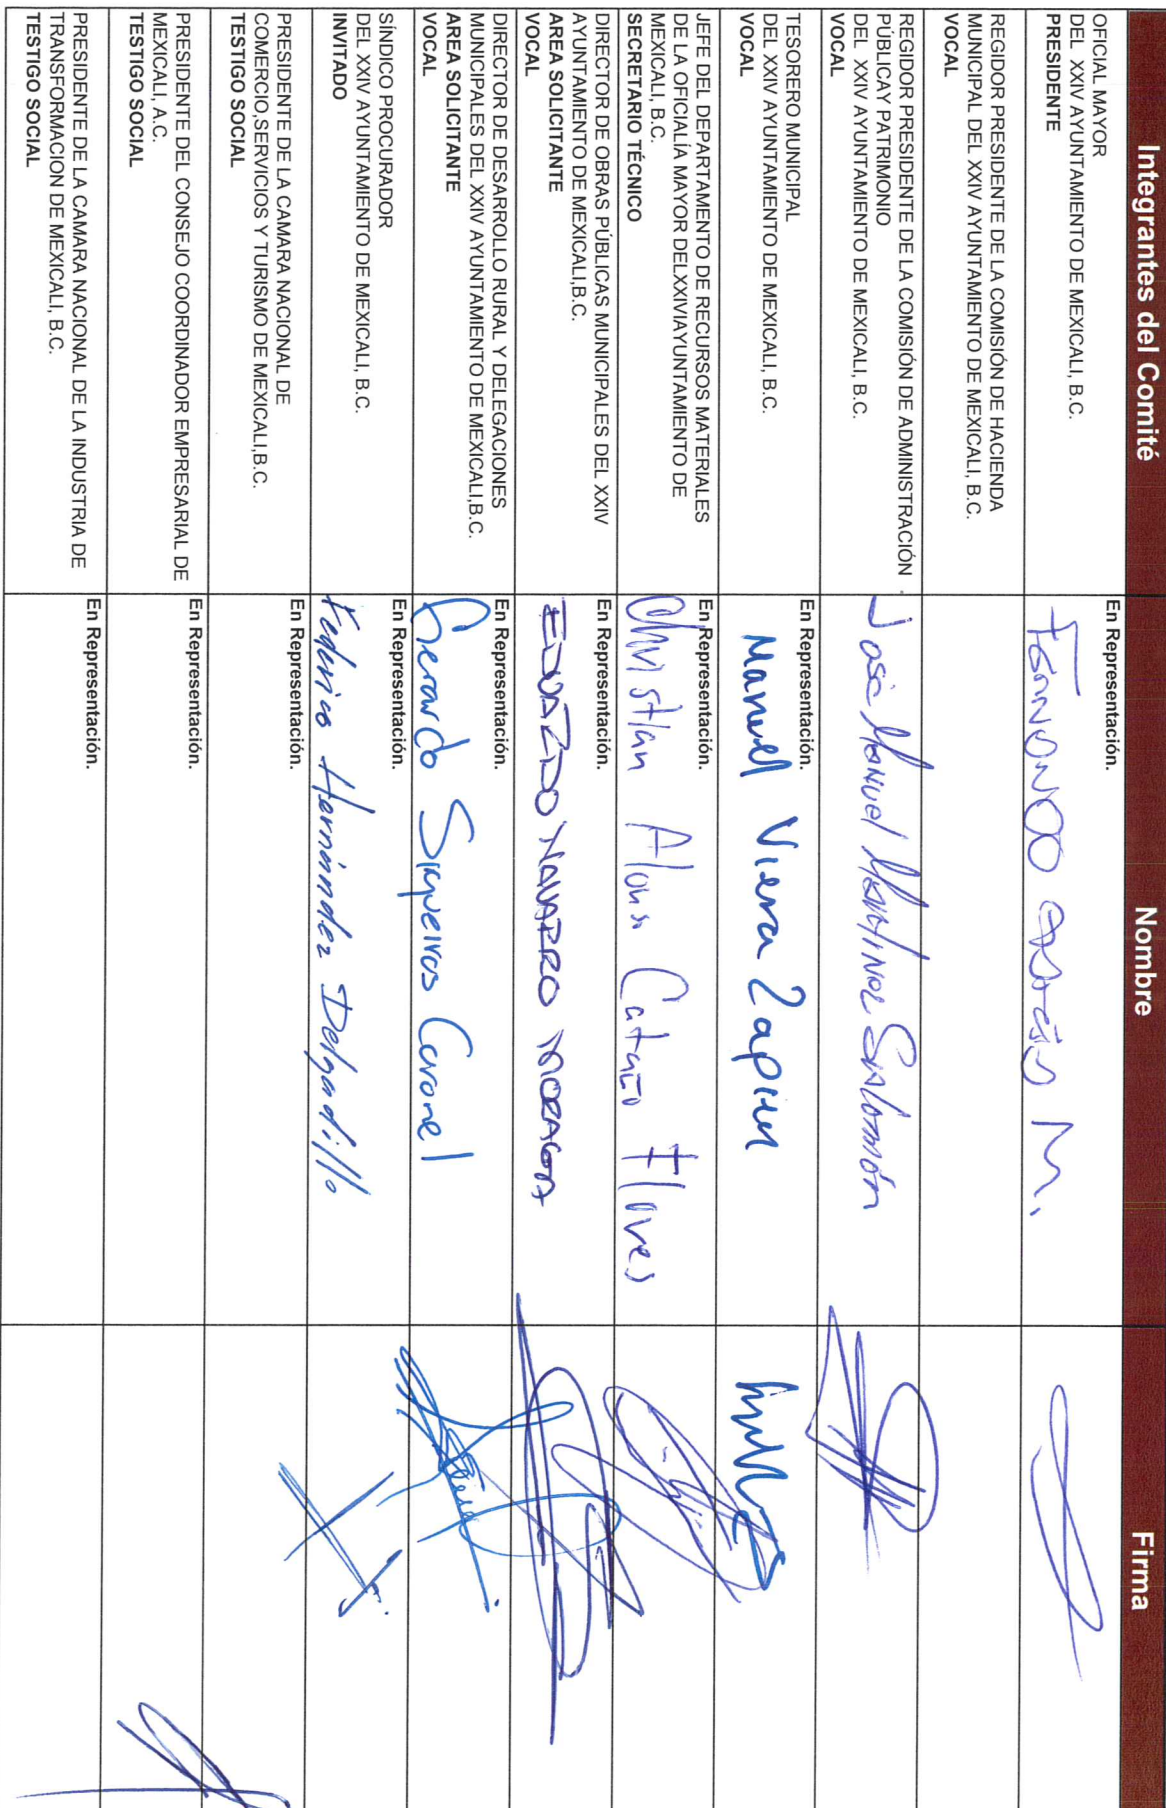 Integrantes del Comité
Nombre
Firma
OFICIAL MAYOR
DEL XXIV AYUNTAMIENTO DE MEXICALI, B.C.
PRESIDENTE
En Representación.
M.
REGIDOR PRESIDENTE DE LA COMISIÓN DE HACIENDA
MUNICIPAL DEL XXIV AYUNTAMIENTO DE MEXICALI, B.C.
VOCAL
REGIDOR PRESIDENTE DE LA COMISIÓN DE ADMINISTRACIÓN
PÚBLICAY PATRIMONIO
DEL XXIV AYUNTAMIENTO DE MEXICALI, B.C.
VOCAL
José Manuel Martínez Salomón
TESORERO MUNICIPAL
DEL XXIV AYUNTAMIENTO DE MEXICALI, B.C.
VOCAL
En Representación.
Manuel Viera Zapien
JEFE DEL DEPARTAMENTO DE RECURSOS MATERIALES
DE LA OFICIALÍA MAYOR DELXXIVIAYUNTAMIENTO DE
MEXICALI, B.C.
SECRETARIO TÉCNICO
En Representación.
Christian Alonso Cataño Flores
DIRECTOR DE OBRAS PÚBLICAS MUNICIPALES DEL XXIV
AYUNTAMIENTO DE MEXICALI,B.C.
AREA SOLICITANTE
VOCAL
En Representación.
EDUARDO NAVARRO MORAGA
DIRECTOR DE DESARROLLO RURAL Y DELEGACIONES
MUNICIPALES DEL XXIV AYUNTAMIENTO DE MEXICALI,B.C.
AREA SOLICITANTE
VOCAL
En Representación.
Gerardo Siqueiros Coronel
SÍNDICO PROCURADOR
DEL XXIV AYUNTAMIENTO DE MEXICALI, B.C.
INVITADO
En Representación.
Federico Hernández Delgadillo
PRESIDENTE DE LA CAMARA NACIONAL DE
COMERCIO,SERVICIOS Y TURISMO DE MEXICALI,B.C.
TESTIGO SOCIAL
En Representación.
PRESIDENTE DEL CONSEJO COORDINADOR EMPRESARIAL DE
MEXICALI, A.C.
TESTIGO SOCIAL
En Representación.
PRESIDENTE DE LA CAMARA NACIONAL DE LA INDUSTRIA DE
TRANSFORMACION DE MEXICALI, B.C.
TESTIGO SOCIAL
En Representación.